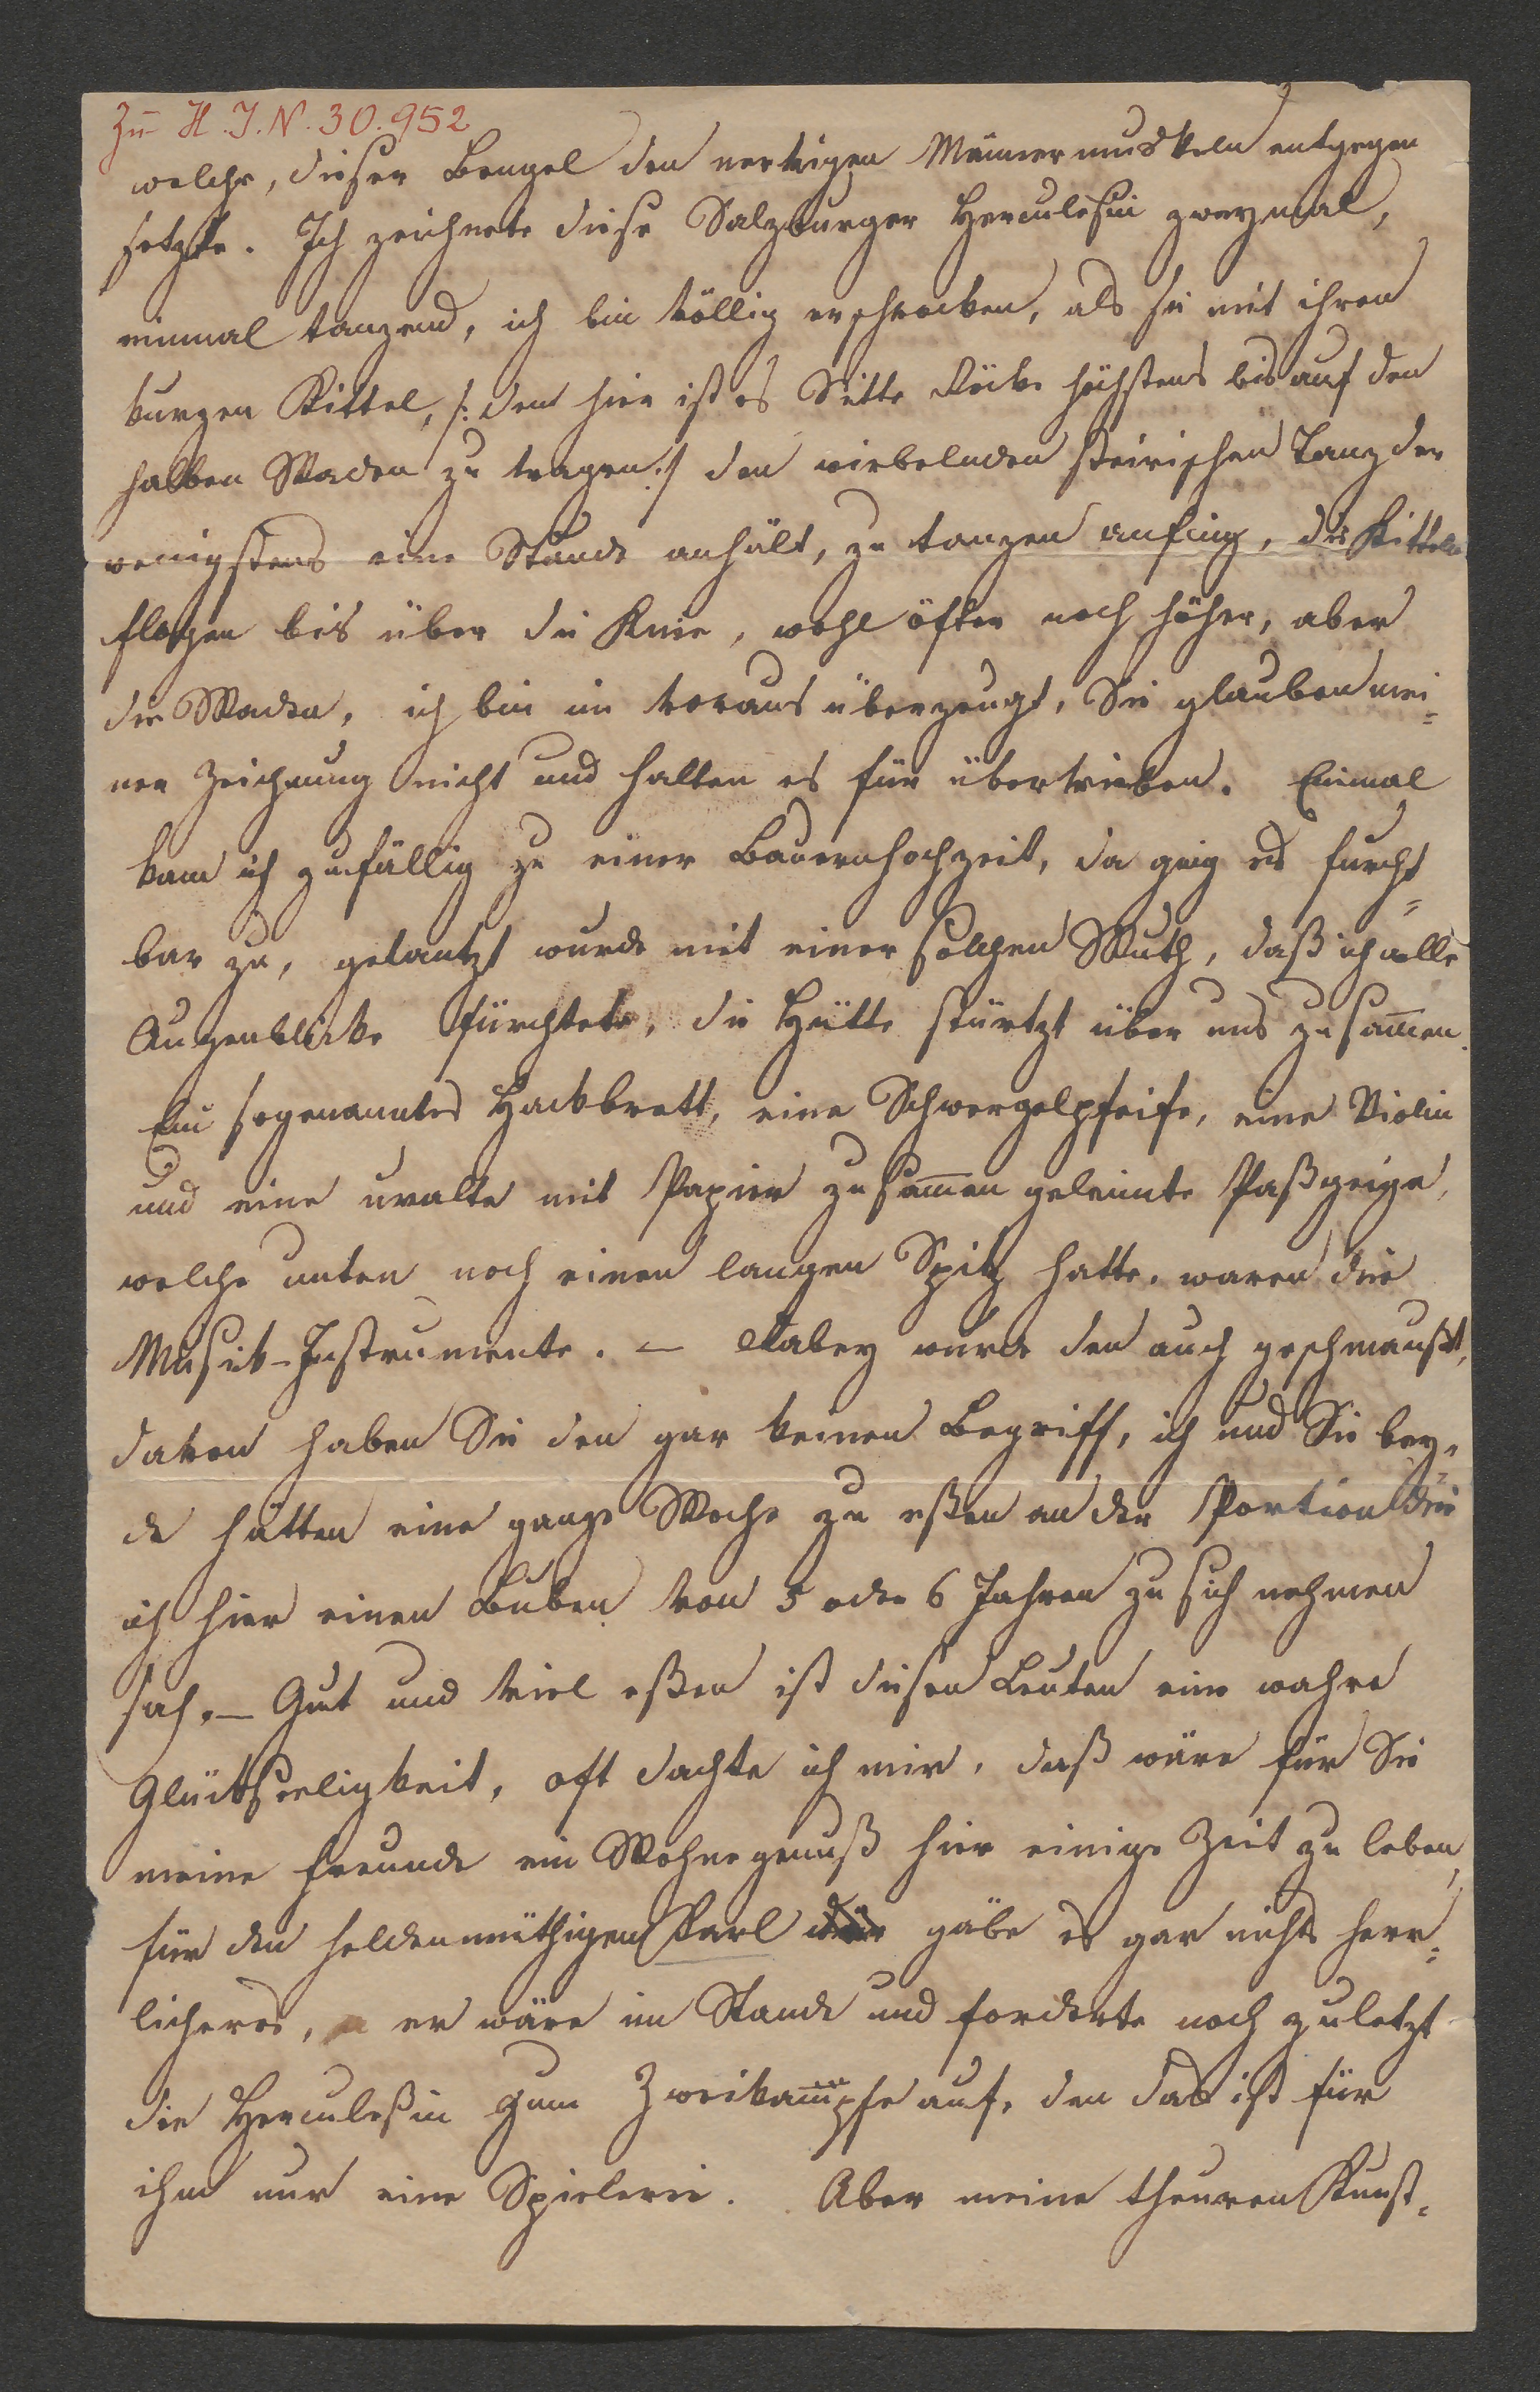 Zu H.I.N. 30.952
welche, dieser Bengel den nervigen Männermuskeln entgegen
setzte. Ich zeichnete diese Salzburger Herculesin zweymal,
einmal tanzend, ich bin völlig erschrocken, als sie mit ihren
kurzen Kittel, /: den hier ist es Sitte Röcke höchstens bis auf den
halben Waden zu tragen :/ den wirbelnden steirischen Tanz der
wenigstens eine Stunde anhält, zu tanzen anfing, die Kitteln
flogen bis über die Knie, wohl öfter noch höher, aber
die Waden, ich bin im voraus überzeugt, Sie glauben mei=
ner Zeichnung nicht und halten es für übertrieben. Einmal
kam ich zufällig zu einer Bauernhochzeit, da ging es furcht=
bar zu, getantzt wurde mit einer solchen Wuth, daß ich alle
Augenblicke fürchtete, die Hütte stürtzt über uns zusam̅en.
Ein sogenanntes Hackbrett, eine Schwergelpfeife, eine Violin
und eine uralte mit Papier zusam̅en geleimte Paßgeige,
welche unten noch einen langen Spitz hatte, waren die
Musik-Instrumente. – Dabey wurde den auch geschmaußt,
davon haben Sie den gar keinen Begriff, ich und Sie bey=
de hätten eine ganze Woche zu eßen an der Portion die
ich hier einen Buben von 5 oder 6 Jahren zu sich nehmen
sah. – Gut und viel eßen ist diesen Leuten eine wahre
Glückseeligkeit, oft dachte ich mir, daß wäre für Sie
meine Freunde ein Wohnegenuß hier einige Zeit zu leben,
für den heldenmüthigen Karl gäbe es gar nichts herr=
licheres, er wäre im Stande und forderte noch zuletzt
die Herculeßin zum Zweikam̅pfe auf, den das ist für
ihm nur eine Spielerei. Aber meine theuren Kunst=